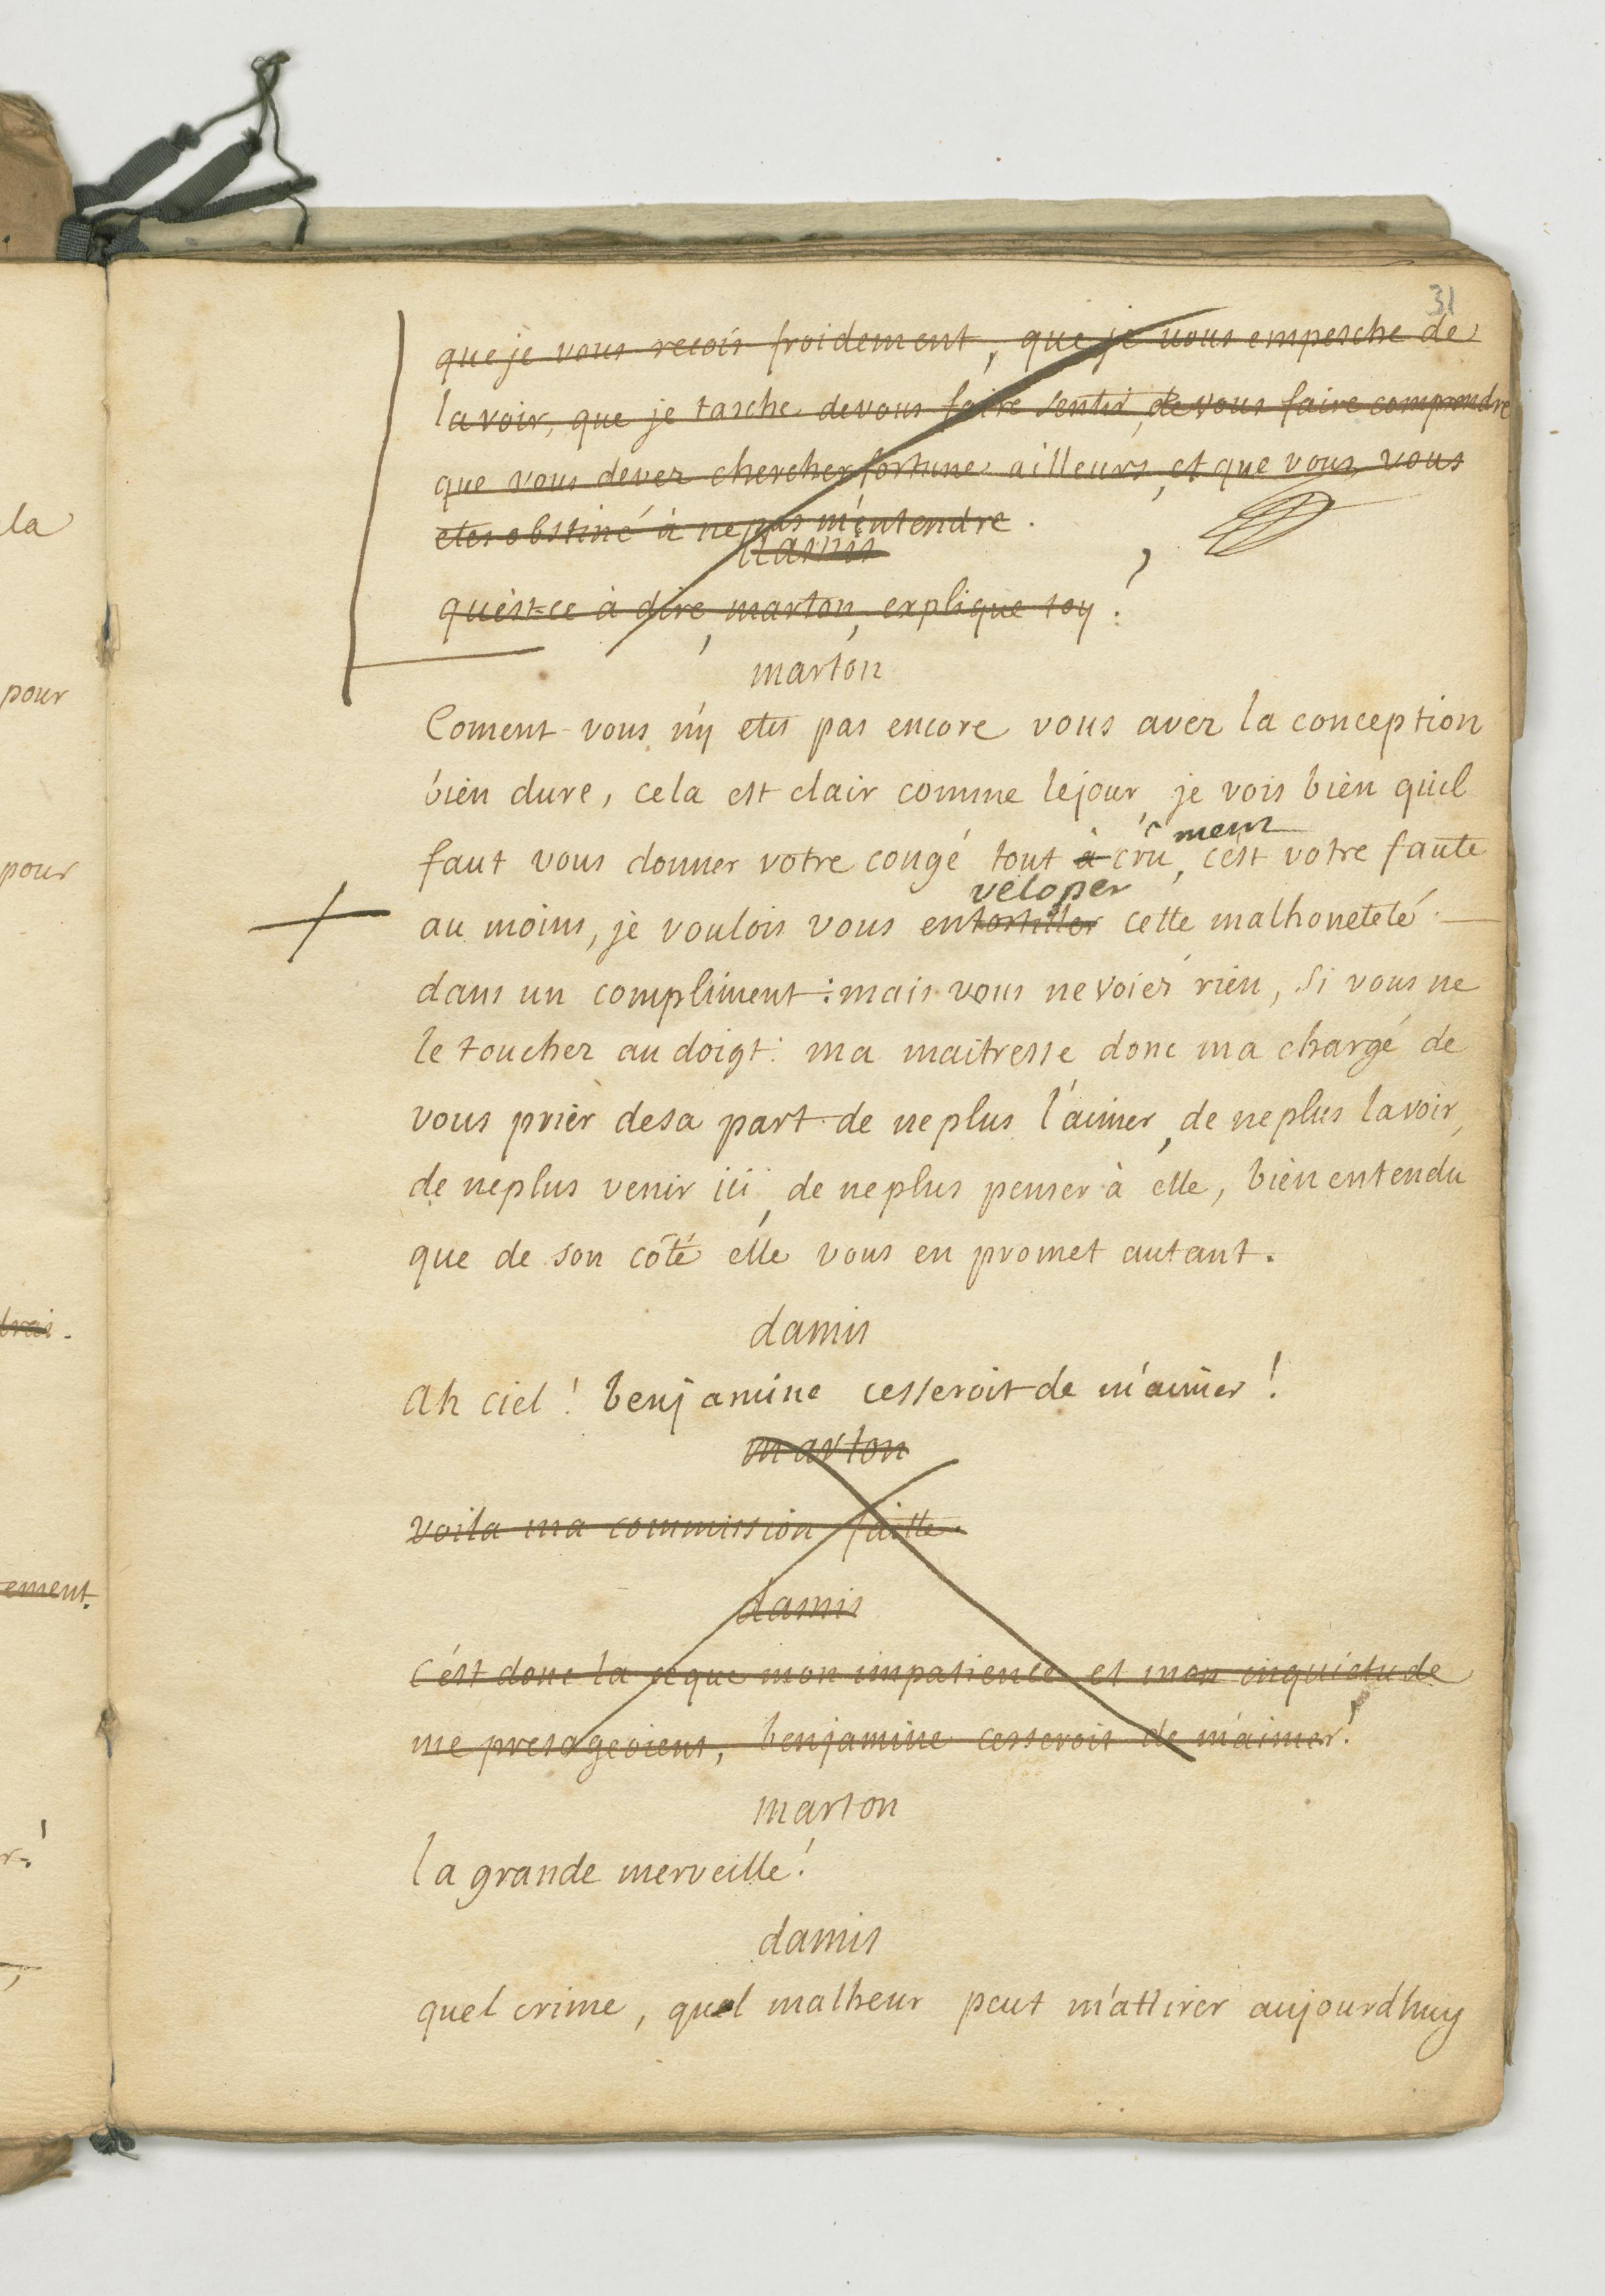 31
que je vous recois froidement, que je vous empesche de
la voir, que je tasche de vous faire sentir, de vous faire comprendre
que vous devez chercher fortune ailleurs, et que vous vous
etes obstiné à ne pas m'entendre.
damis
qu'est=ce à dire, marton, explique toy.
marton
Coment vous n'y etes pas encore vous avez la conception
bien dure, cela est clair comme le jour, je vois bien qu'il
ment
faut vous donner votre congé tout à crû, c'est votre faute
veloper
au moins, je voulois vous entortiller cette malhoneteté
dans un compliment: mais vous ne voiez rien, si vous ne
le touchez au doigt: ma maitresse donc ma chargé de
vous prier de sa part de ne plus l'aimer, de ne plus la voir,
de ne plus venir ici, de ne plus penser à elle, bien entendu
que de son côté elle vous en promet autant.
damis
Ah ciel! benjamine cesseroit de m'aimer!
marton
voila ma commission faitte.
damis
c'est donc la ce que mon impatience et mon inquietude
me presageoient, benjamine cesseroit de m'aimer!
marton
la grande merveille!
damis
quel crime, quel malheur peut m'attirer aujourdhuy
la
pour
pour
drai.
ement.
r!